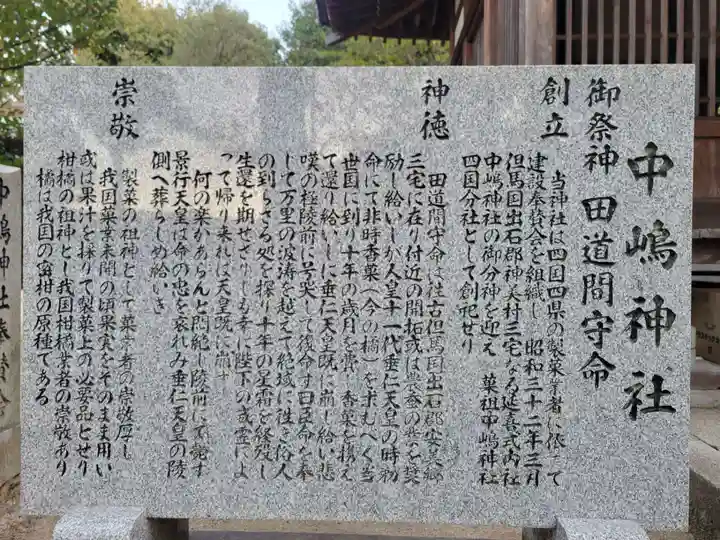 中嶋神社
御祭神 田道間守命
創立
当神社は四国四県の製菓業者に依って
建設奉賛会を組織し 昭和三十二年三月
但馬国出石郡神美村三宅なる延喜式内社
中嶋神社の御分神を迎え 菓祖中嶋神社
四国分社として創祀せり
神徳
田道間守命は往古但馬国出石郡
三宅に在り付近の開拓或は養蚕の業を奨
励し給いしが人皇十一代垂仁天皇の時勅
命にて非時香菓(今の橘)を求むべく当
世国に到り十年の歳月を費し香菓を携え
て還り給いしに垂仁天皇既に崩し給い悲
嘆の極陵前に号哭して復命す曰皇命を奉
じて万里の波涛を越えて絶域に往き俗人
の到らざる処を探り十年の星霜を経残し
生還を期せざりしも幸に陛下の威霊によ
って帰り来れば天皇既に崩ず
何の楽かあらんと悶絶し陵前にて薨ず
景行天皇は命の忠を哀れみ垂仁天皇の陵
側へ葬らしめ給いき
崇敬
製菓の祖神として菓業者の崇敬厚し
我国菓業未開の頃果実をそのまま用い
或は果汁を採りて製菓上の必要品とせり
柑橘の祖神とし我国柑橘業者の崇敬あり
橘は我国の蜜柑の原種である
中嶋神社奉賛会